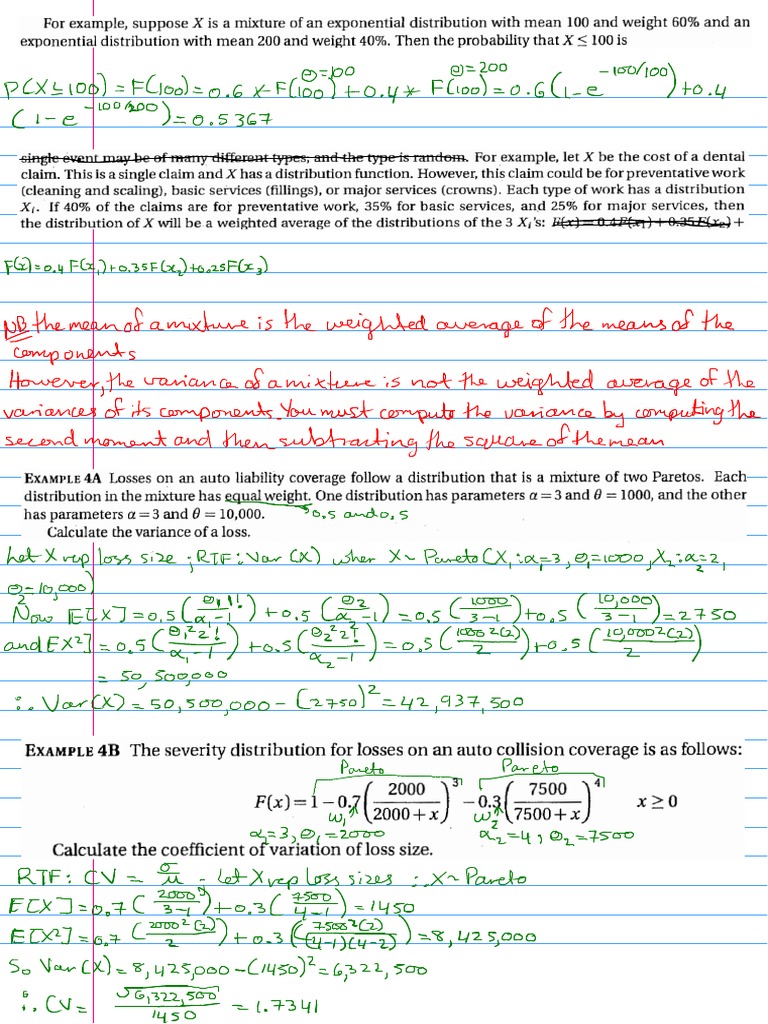 For example, suppose X is a mixture of an exponential distribution with mean 100 and weight 60% and an
exponential distribution with mean 200 and weight 40%. Then the probability that X ≤ 100 is
P(X≤100) = F(100) = 0.6 * F(100)^{θ=100} + 0.4 * F(100)^{θ=200} = 0.6(1-e^{-100/100}) + 0.4
(1-e^{-100/200}) = 0.5367
single event may be of many different types, and the type is random. For example, let X be the cost of a dental
claim. This is a single claim and X has a distribution function. However, this claim could be for preventative work
(cleaning and scaling), basic services (fillings), or major services (crowns). Each type of work has a distribution
Xᵢ. If 40% of the claims are for preventative work, 35% for basic services, and 25% for major services, then
the distribution of X will be a weighted average of the distributions of the 3 Xᵢ's: F(x) = 0.4F(x₁) + 0.35F(x₂) +
F(x)=0.4F(x₁)+0.35F(x₂)+0.25F(x₃)
NB the mean of a mixture is the weighted average of the means of the
components
However, the variance of a mixture is not the weighted average of the
variances of its components. You must compute the variance by computing the
second moment and then subtracting the square of the mean
EXAMPLE 4A Losses on an auto liability coverage follow a distribution that is a mixture of two Paretos. Each
distribution in the mixture has equal weight. One distribution has parameters α = 3 and θ = 1000, and the other
has parameters α = 3 and θ = 10,000. 0.5 and 0.5
Calculate the variance of a loss.
Let X rep loss size ; RTF: Var(X) wher X~ Pareto(X₁: α₁=3, θ₁=1000, X₂: α₂=2,
θ₂=10,000)
Now E[X] = 0.5(θ₁1!/α₁-1) + 0.5(θ₂/α₂-1) = 0.5(1000/3-1) + 0.5(10,000/3-1) = 2750
and EX²] = 0.5(θ₁²2!/α₁-1) + 0.5(θ₂²2!/α₂-1) = 0.5(1000²(2)/2) + 0.5(10,000²(2)/2)
= 50,500,000
∴ Var(X) = 50,500,000 - (2750)² = 42,937,500
EXAMPLE 4B The severity distribution for losses on an auto collision coverage is as follows:
Pareto Pareto
F(x) = 1 − 0.7(2000/2000 + x)³ − 0.3(7500/7500 + x)⁴ x ≥ 0
w₁ w₂
α₂=3, θ₁=2000 α₂=4, θ₂=7500
Calculate the coefficient of variation of loss size.
RTF: CV = σ/μ. Let X rep loss sizes ∴ X~ Pareto
E[X] = 0.7(2000/3-1) + 0.3(7500/4-1) = 1450
E[X²] = 0.7(2000²(2)/2) + 0.3(7500²(2)/(4-1)(4-2)) = 8,425,000
So Var(X) = 8,425,000 - (1450)² = 6,322,500
∴ CV = √6,322,500/1450 = 1.7341